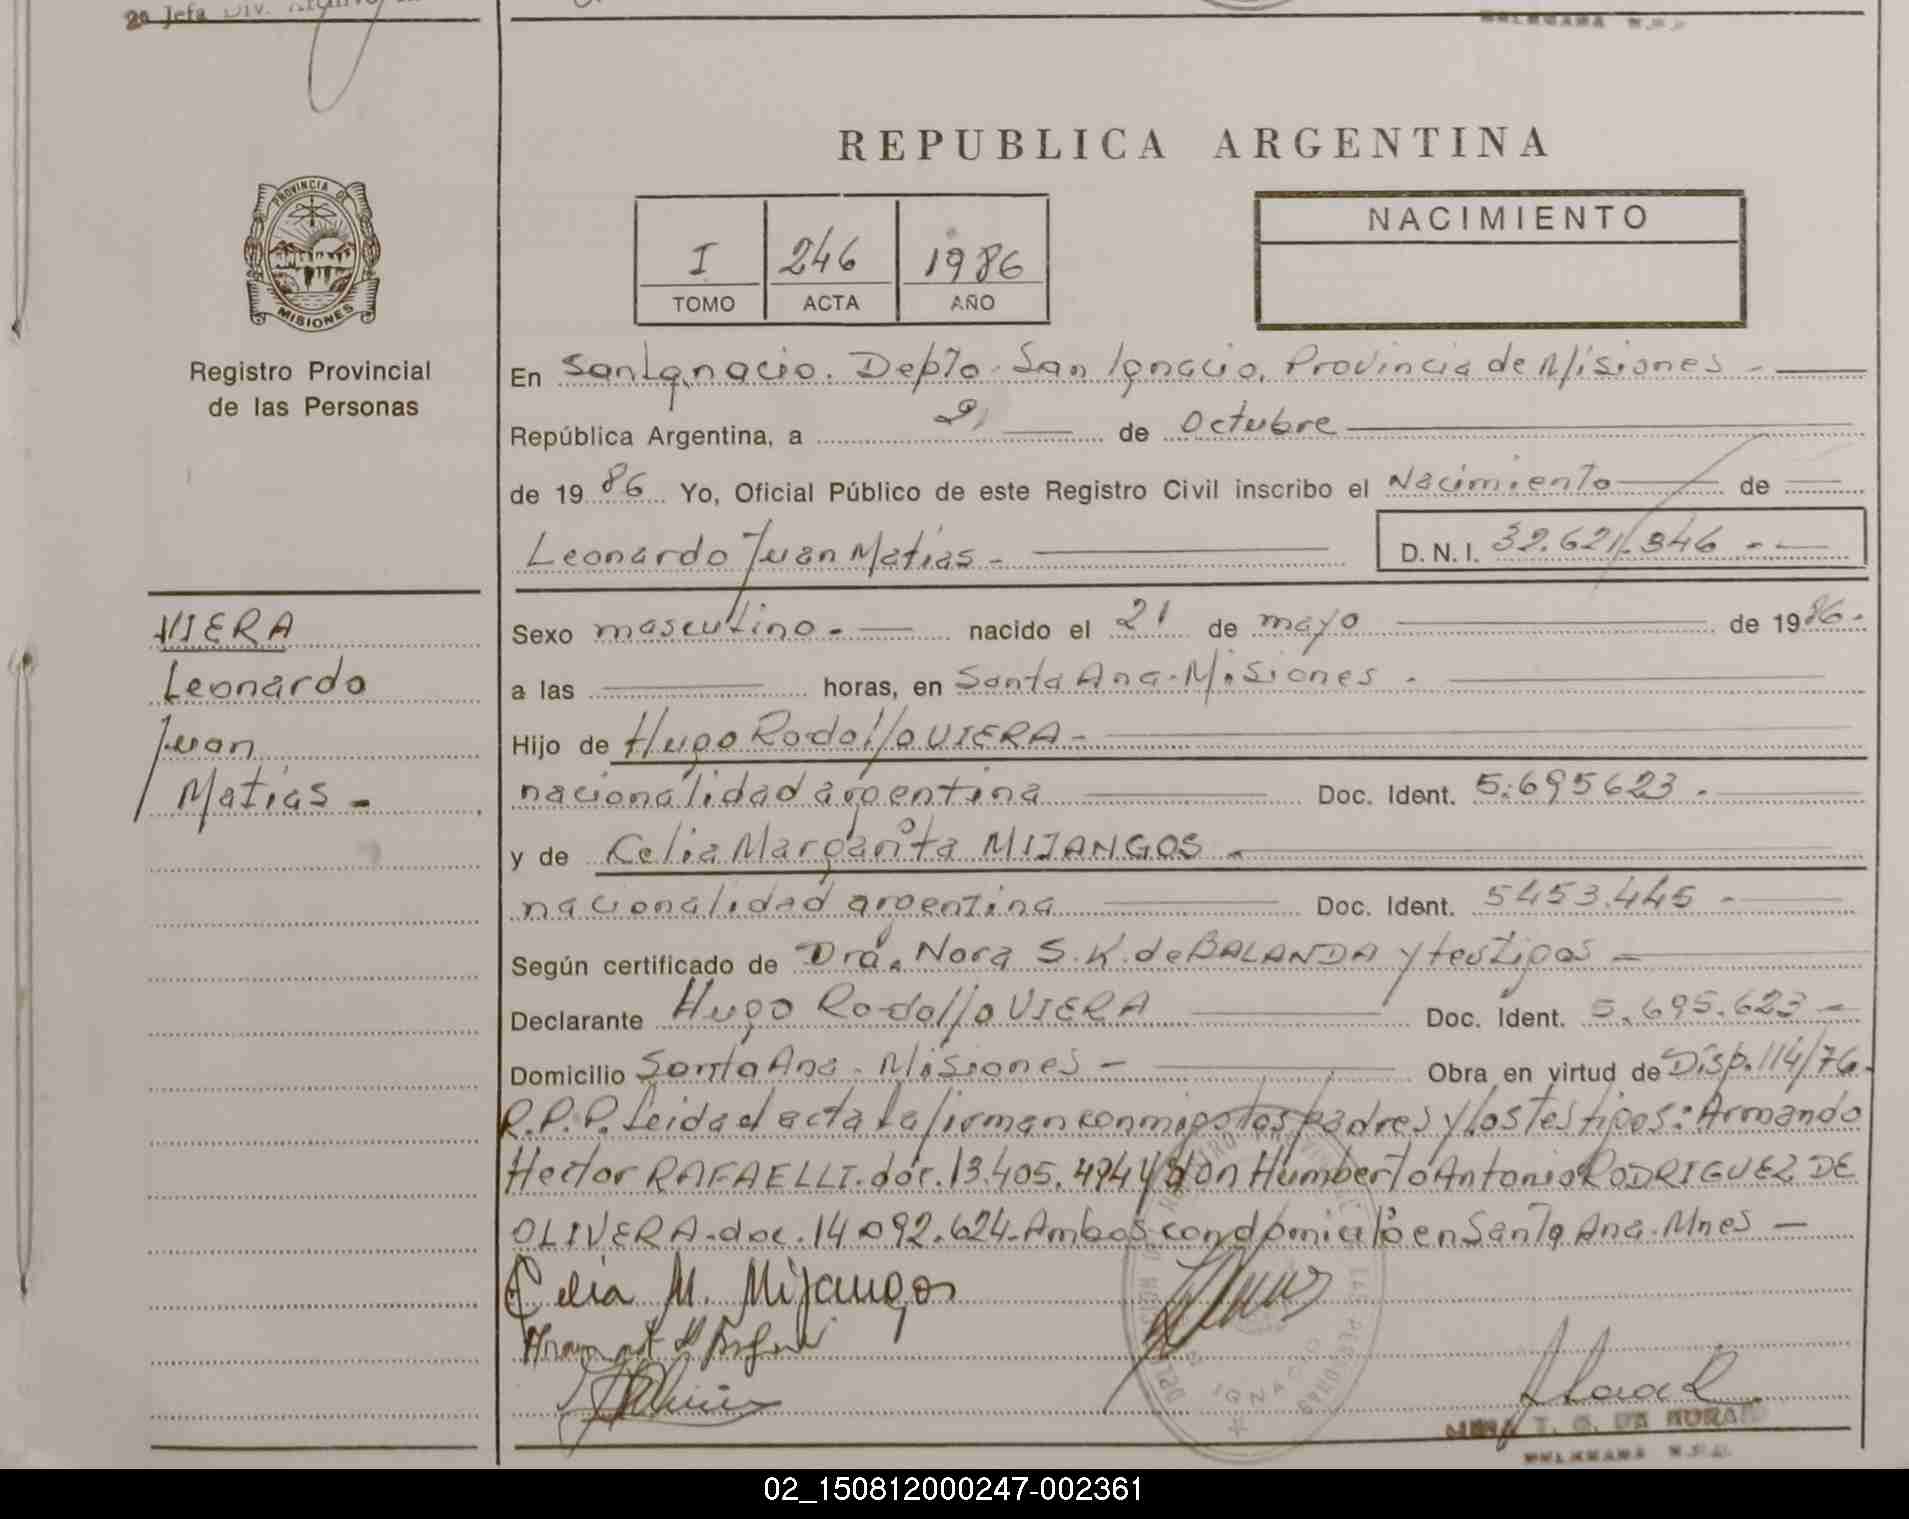 2a Jefa Div. Archivo
REPUBLICA ARGENTINA
PROVINCIA DE
MISIONES
Registro Provincial
de las Personas
I 246 1986
TOMO ACTA AÑO
NACIMIENTO
En San Ignacio. Depto. San Ignacio, Provincia de Misiones -
República Argentina, a de Octubre
de 19 86 Yo, Oficial Público de este Registro Civil inscribo el Nacimiento de
Leonardo Juan Matías - D.N.I. 32.621.346 -
VIERA
Leonardo
Juan
Matías -
Sexo masculino - nacido el 21 de mayo de 1986-
a las horas, en Santa Ana - Misiones -
Hijo de Hugo Rodolfo VIERA -
nacionalidad argentina Doc. Ident. 5.695623 -
y de Celia Margarita MIJANGOS -
nacionalidad argentina Doc. Ident. 5453.445 -
Según certificado de Dra. Nora S. K. de BALANDA y testigos -
Declarante Hugo Rodolfo VIERA Doc. Ident. 5.695.623 -
Domicilio Santa Ana - Misiones - Obra en virtud de Disp. 114/76.
R.P.P. Leida el acta la firman conmigo los padres y los testigos: Armando
Hector RAFAELLI. doc. 13.405.494 y don Humberto Antonio RODRIGUEZ DE
OLIVERA. doc. 14.092.624. Ambos con domicilio en Santa Ana. Mnes -
Celia M. Mijangos
T. G. DA
02_150812000247-002361